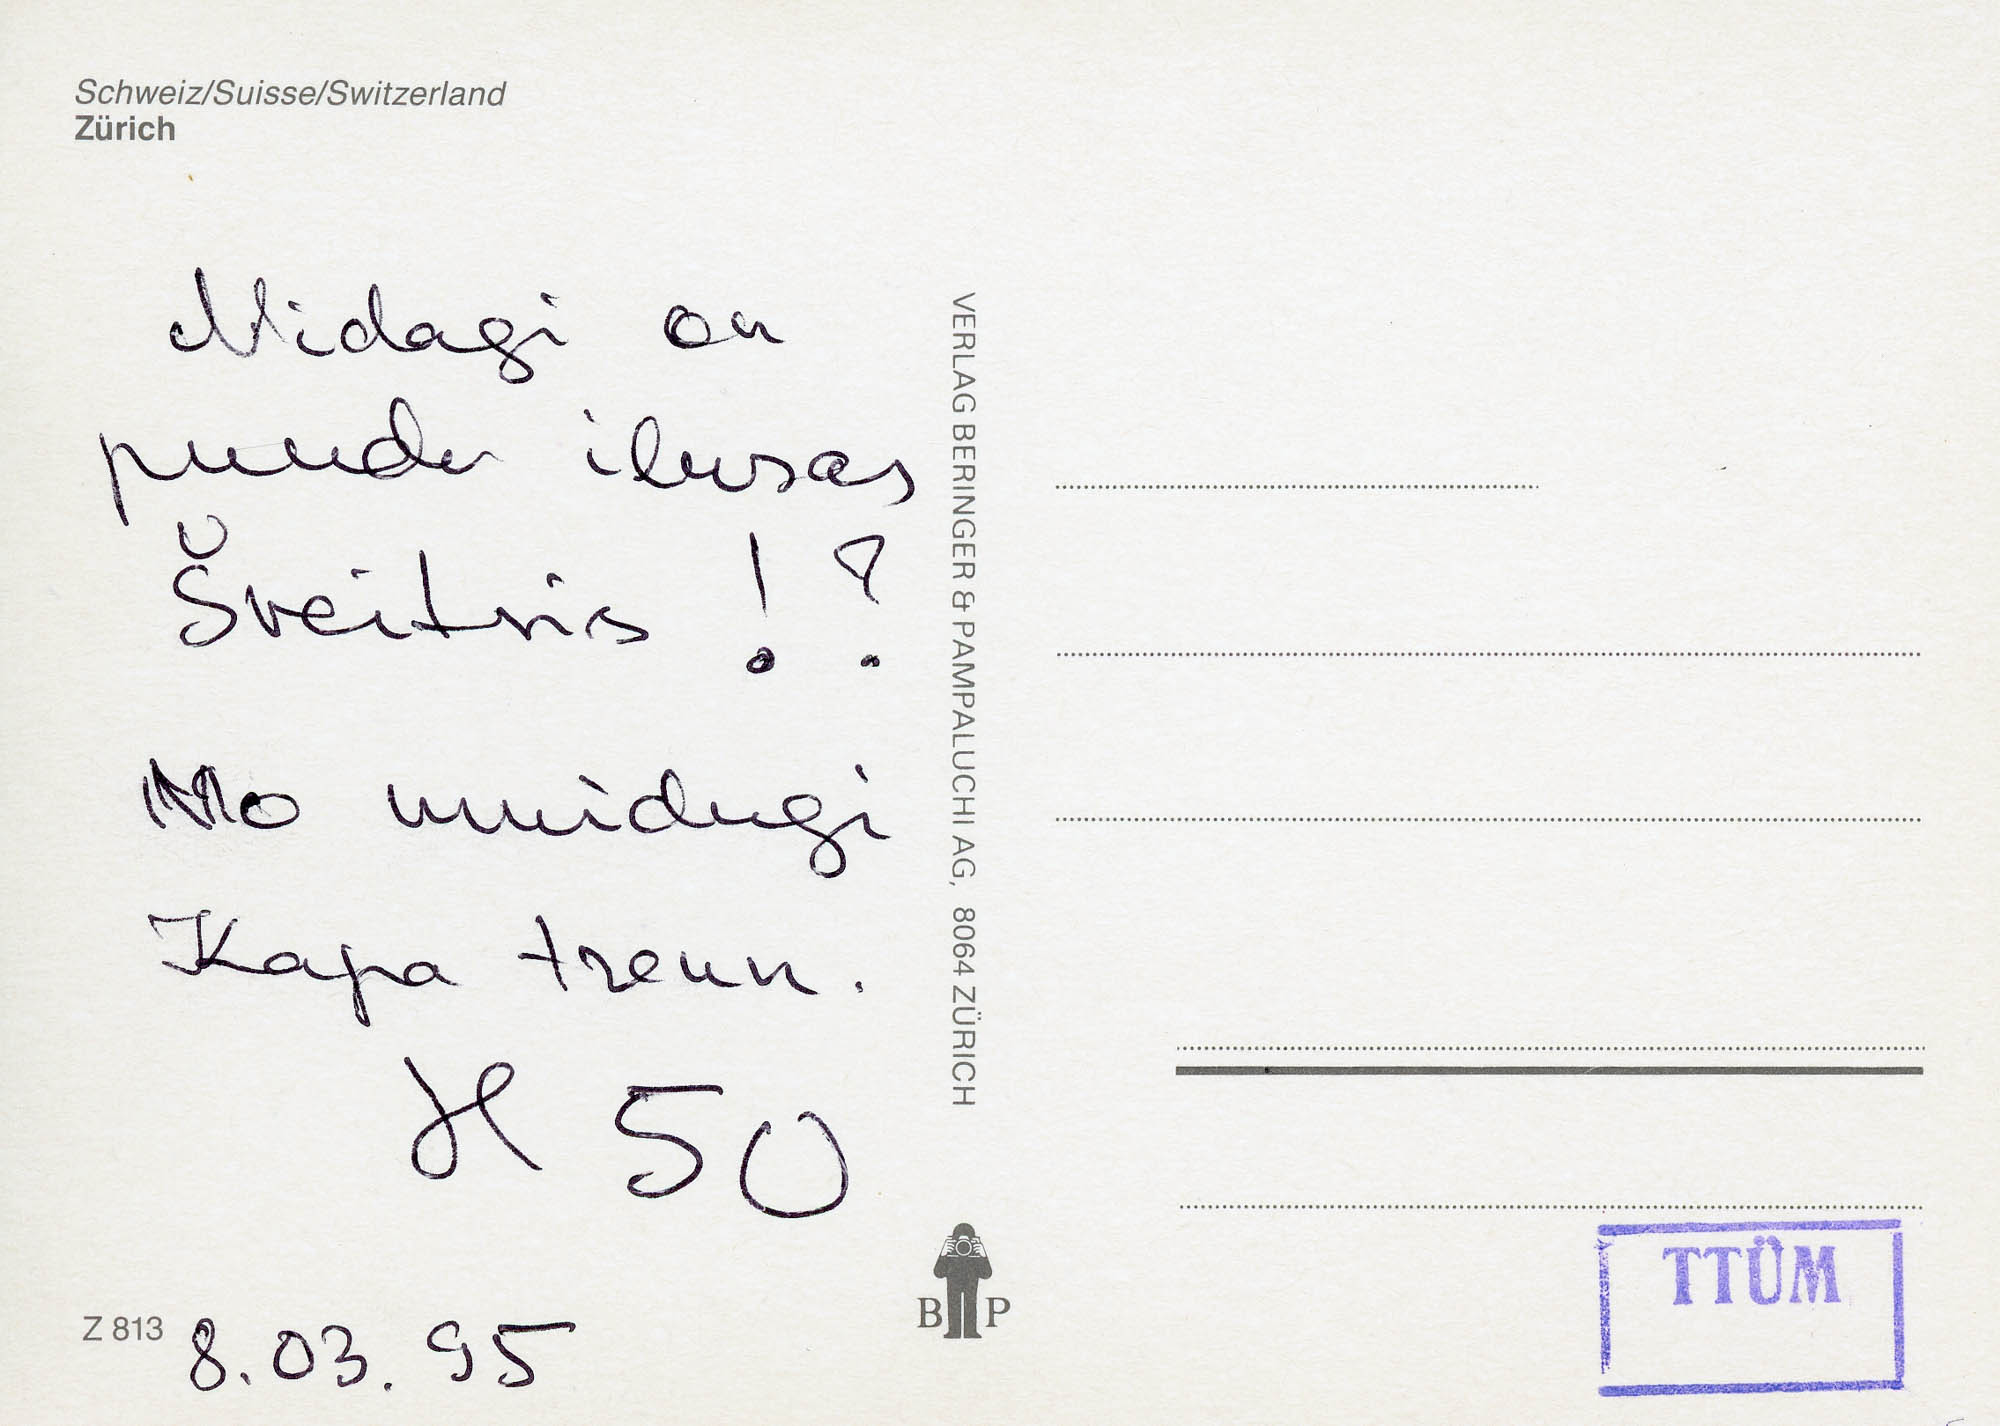 Schweiz/Suisse/Switzerland
Zürich
Midagi on
puudu ilusas
Šveitsis !?
No muidugi
Kapa treun.
H 50
Z 813
8.03.95
VERLAG BERINGER & PAMPALUCHI AG, 8064 ZÜRICH
B P
TTÜM